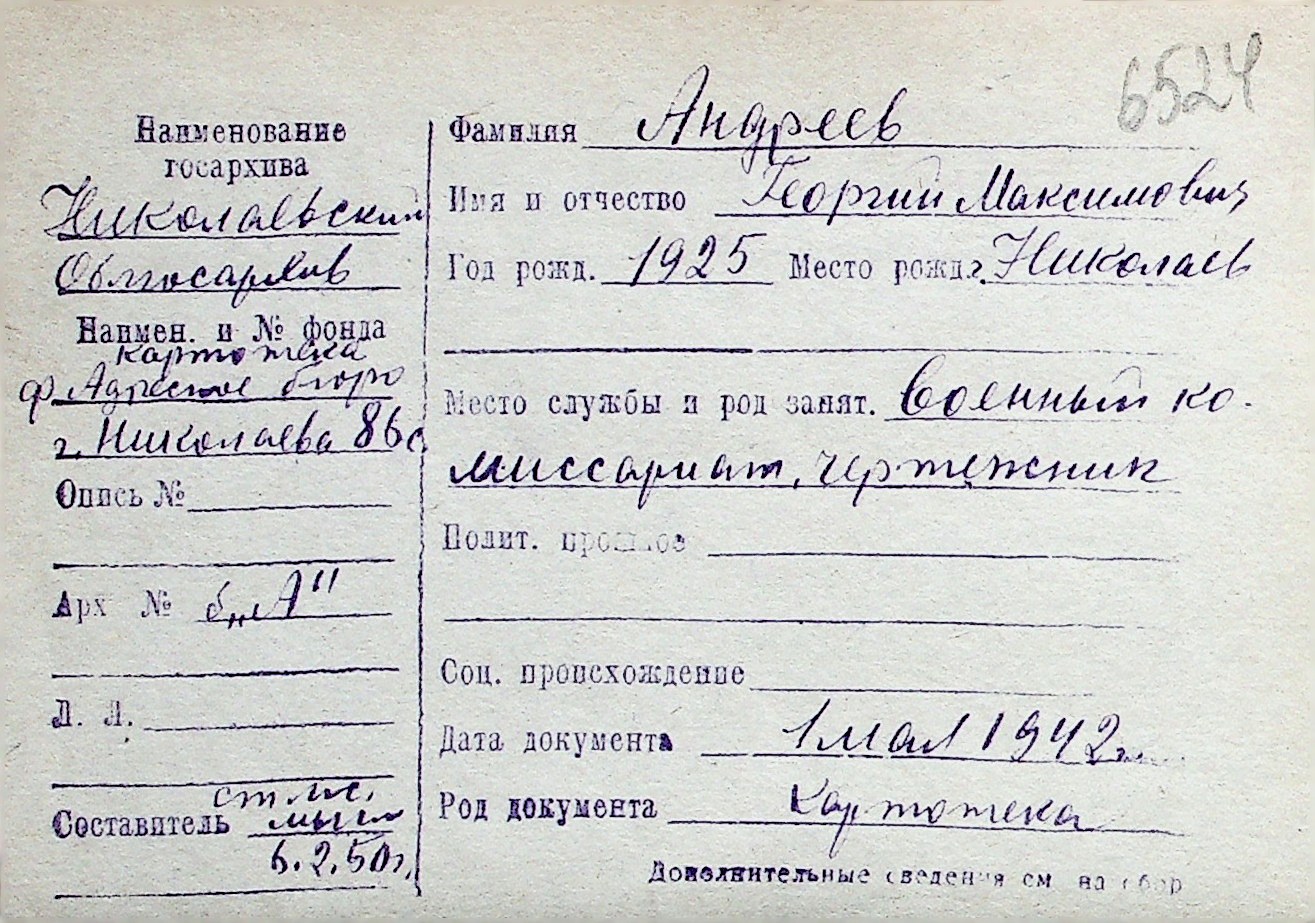 6524
Наименование
госархива
Николаевский
Облгосархив
Наимен. и № фонда
картотека
ф. Адресное бюро
г. Николаева 86с
Опись №
Арх № б „А"
Л. Л.
Составитель
6.2.50г.
Фамилия Андреев
Имя и отчество Георгий Максимович
Год рожд. 1925 Место рожд. г. Николаев
Место службы и род занят. Военный ко-
миссариат, чертежник
Полит. прошлое
Соц. происхождение
Дата документа 1 мая 1942 г.
Род документа Картотека
Дополнительные сведения см на обор